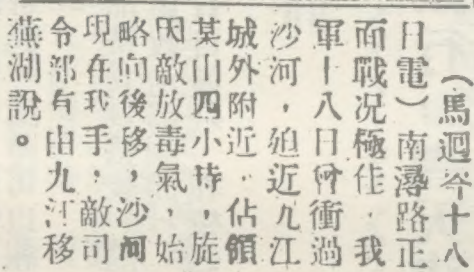 （馬迴岺十八
日電）南潯路正
面戰况極佳，我
軍十八日曾衝過
沙河，廹近九江
城外附近，佔領
某山四小時，旋
因敵放毒氣，始
略向後移，沙河
現在我手，敵司
令部有由九江移
蕪湖說。